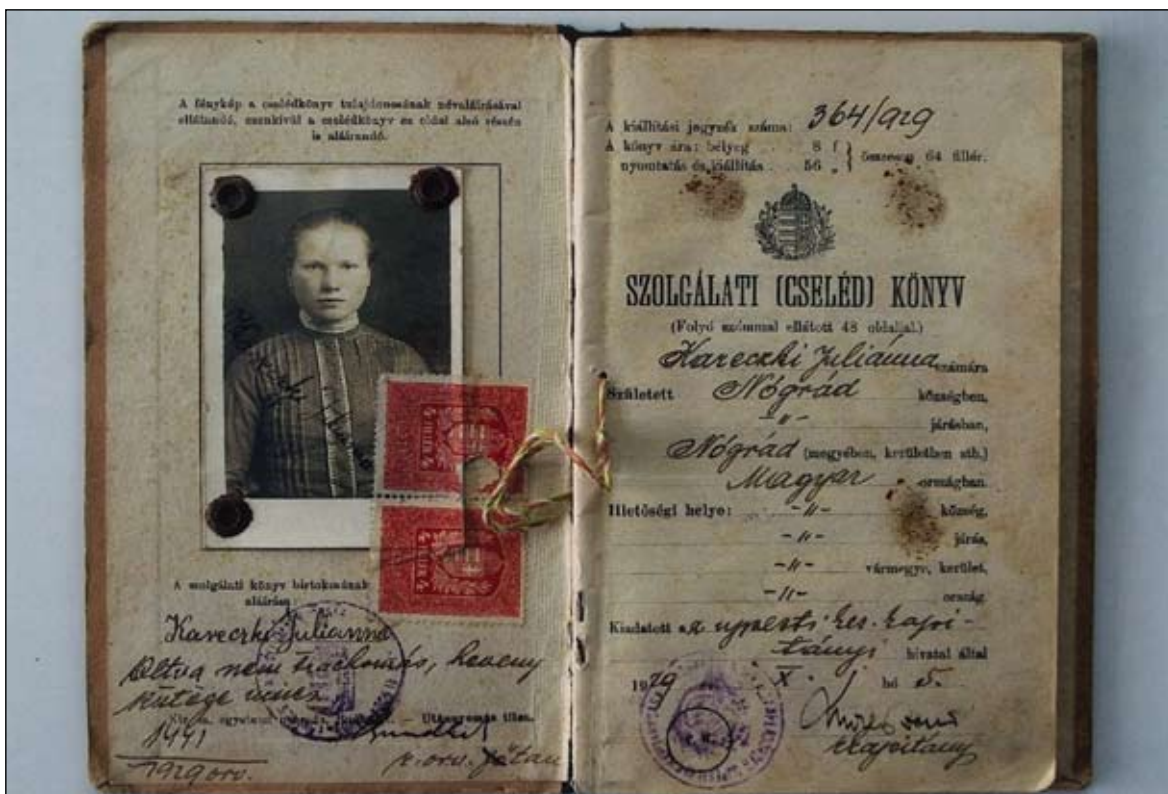 A fénykép a cselédkönyv tulajdonosának névaláirásával
ellátandó, ezenkívül a cselédkönyv ez oldal alsó részén
is aláirandó.
A szolgálati könyv birtokosának
aláirása:
Kareczki Julianna
Oltva nem trachomás, heveny
kütege nincs
— Utánnyomás tilos.
1441
1929 orv.
A kiállitási jegyzék száma: 364/929
A könyv ára: bélyeg . . 8 f
nyomtatás és előállítás . . 56 „ } összesen 64 fillér.
SZOLGÁLATI (CSELÉD) KÖNYV
(Folyó számmal ellátott 48 oldallal.)
Kareczki Juliánna számára
Született Nógrád községben,
-„- járásban,
Nógrád (megyében, kerületben stb.)
Magyar országban.
Illetőségi helye: -„- község,
-„- járás,
-„- vármegye, kerület,
-„- ország.
Kiadatott az ujpesti ker. kapi-
tányi hivatal által
1929 X. hó 5.
kapitány